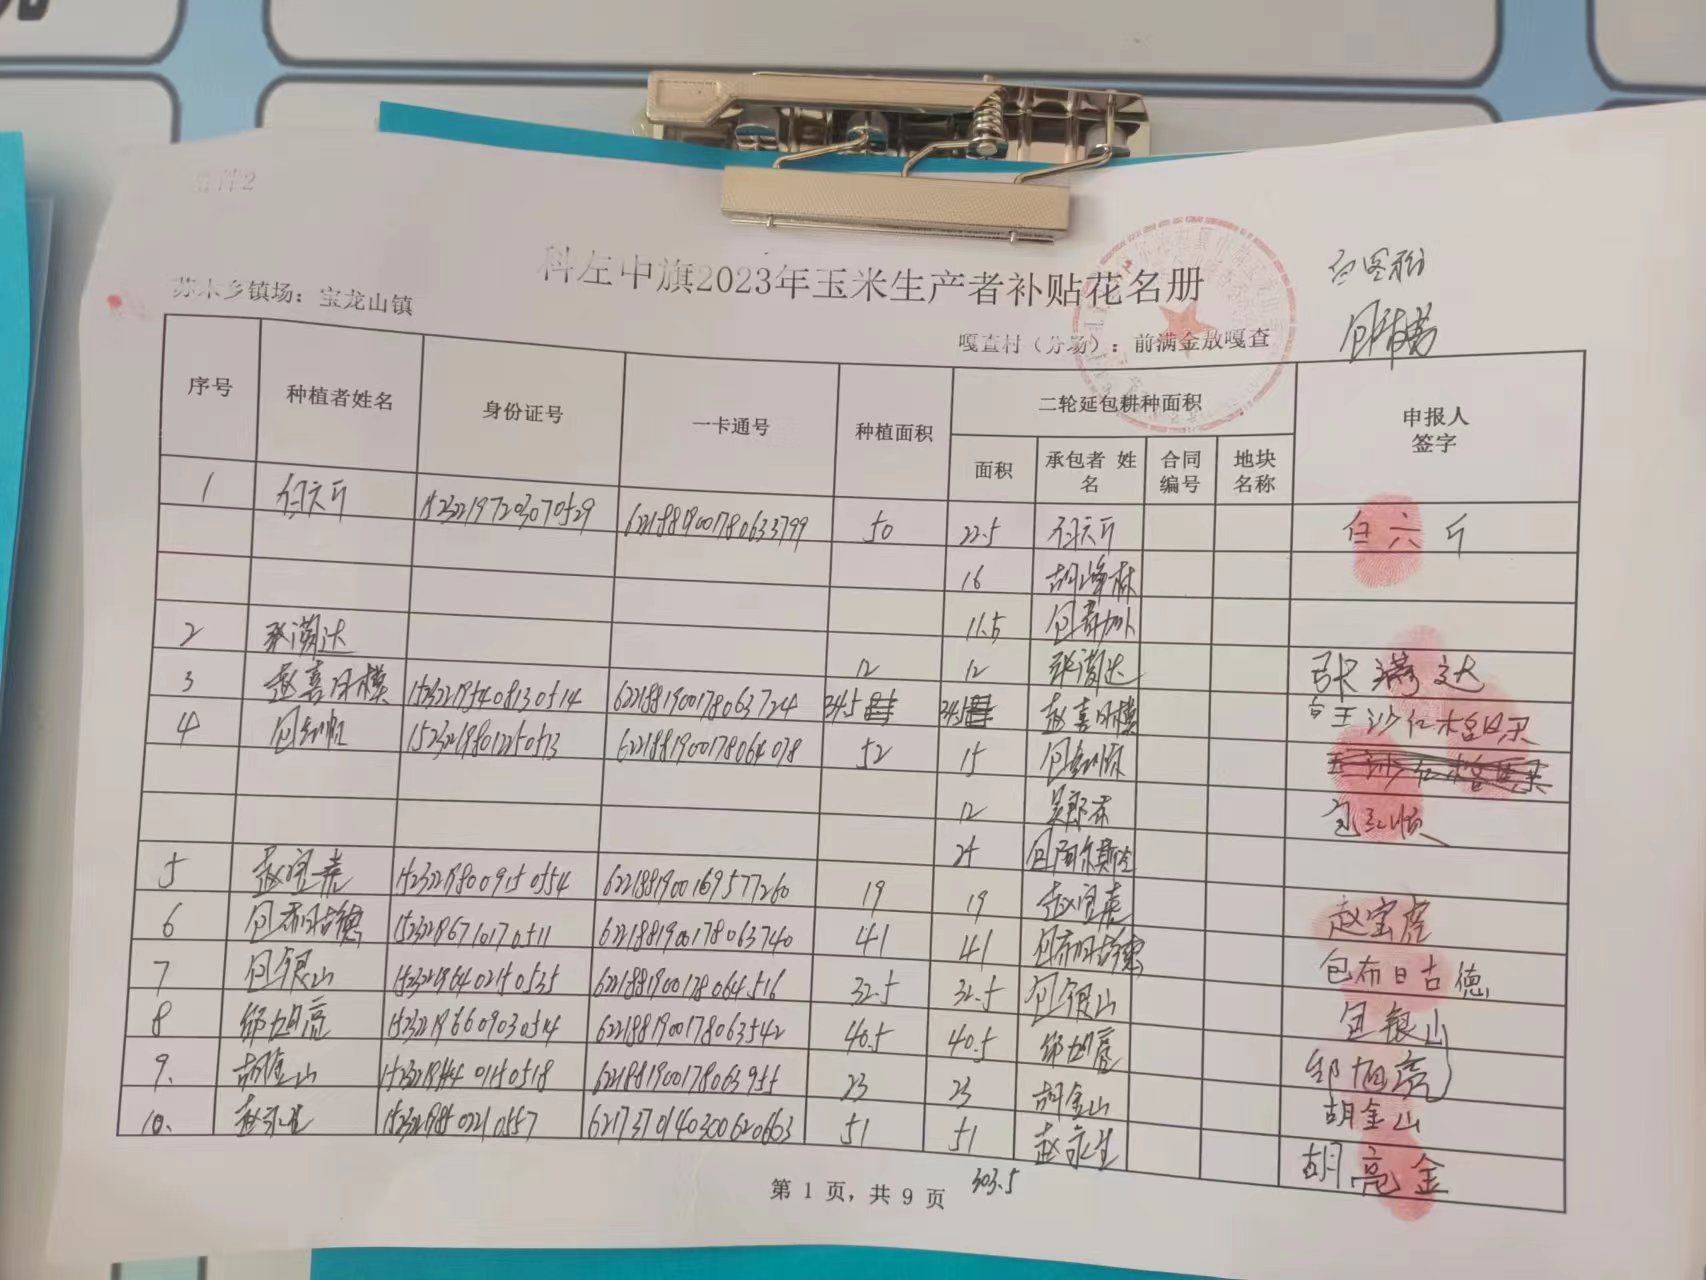 附件2
科左中旗2023年玉米生产者补贴花名册
苏木乡镇场：宝龙山镇
嘎查村（分场）：前满金敖嘎查
序号 种植者姓名 身份证号 一卡通号 种植面积 二轮延包耕种面积 申报人签字
面积 承包者 姓名 合同编号 地块名称
1 白六斤 152322197203070529 62218819001780633799 50 22.5 白六斤 白六斤
16 胡海林
11.5
2 张满达 12 12 张满达 张满达
3 赵喜日模 152322195408130514 6221881900178063724 34.5 34.5 赵喜日模
4 包红顺 6221881900178064078 52 15 包红顺 包红顺
12
25 包阿尔斯楞
5 赵宝虎 152322198009150554 6221881900169577260 19 19 赵宝虎 赵宝虎
6 包布日古德 152322196710170511 6221881900178063740 41 41 包布日古德 包布日古德
7 包银山 152322196402150535 6221881900178064516 32.5 32.5 包银山 包银山
8 邹旭亮 152322196609030514 6221881900178063542 40.5 40.5 邹旭亮 邹旭亮
9. 胡金山 6221881900178063955 23 23 胡金山 胡金山
10. 赵永生 152322198502210557 6217370140300620663 51 51 赵永生 胡亮金
第 1 页，共 9 页
303.5